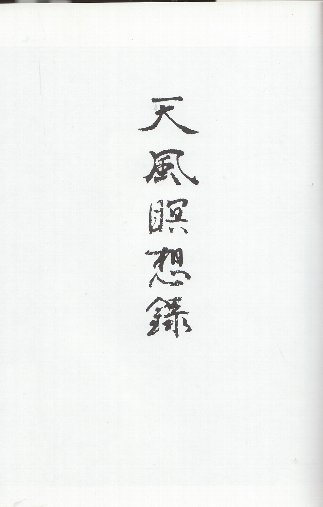 天風瞑想録